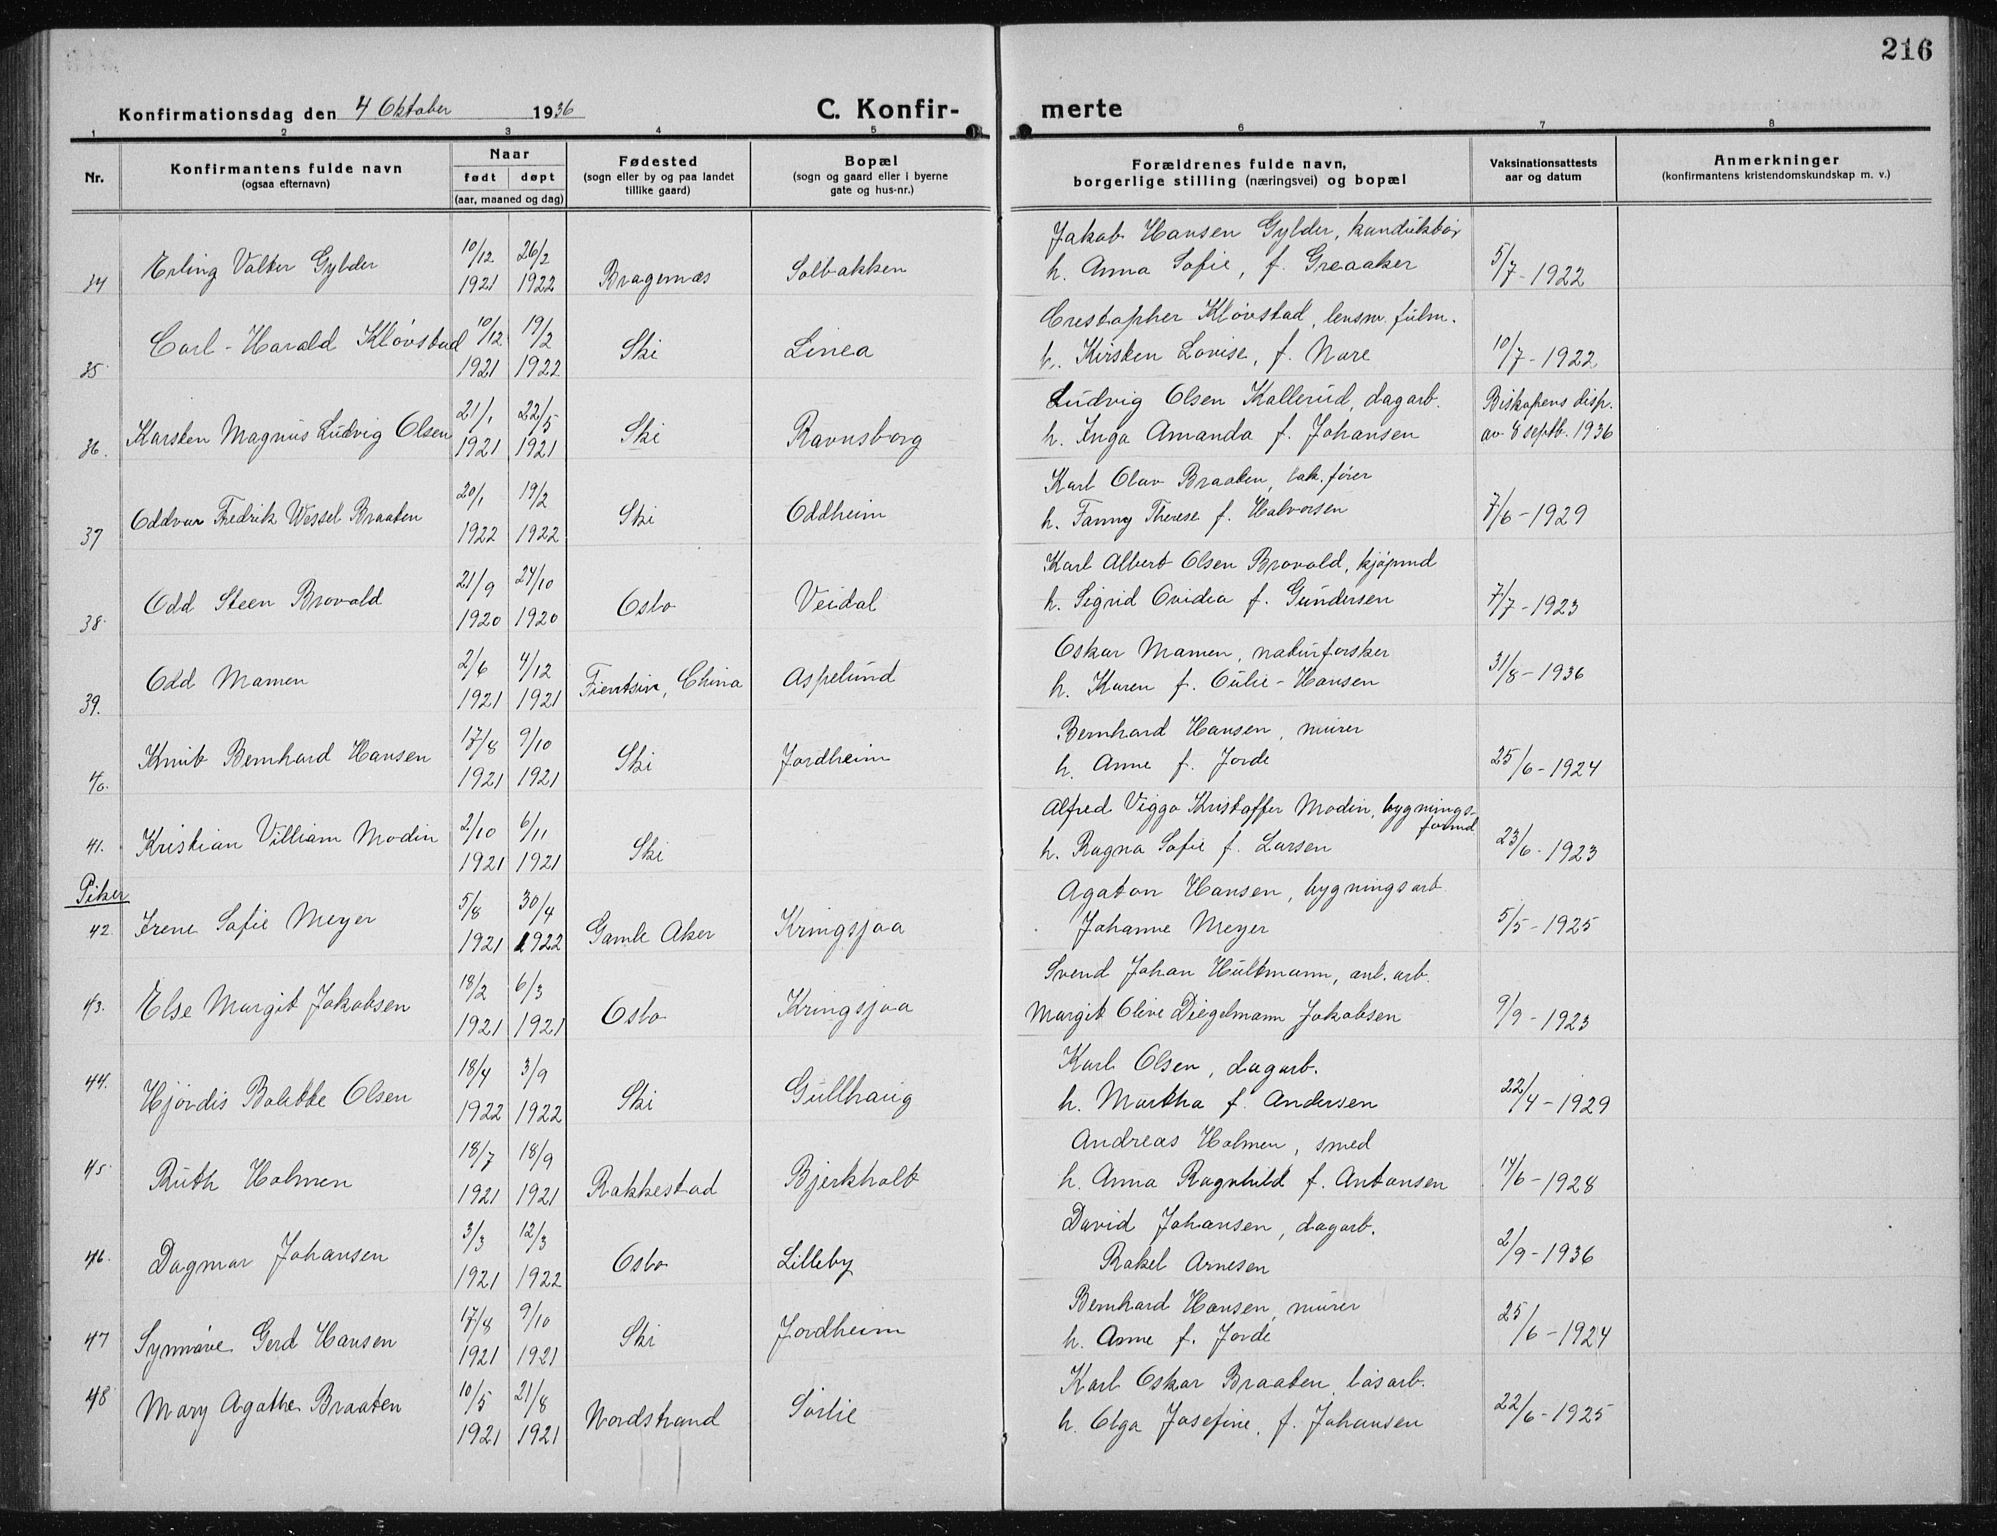 216
Konfirmationsdag den 4 Oktober 1936 C. Konfir- merte
1 2 3 4 5 6 7 8
Nr. Konfirmantens fulde navn (ogsaa efternavn) Naar født døpt (aar, maaned og dag) Fødested (sogn eller by og paa landet tillike gaard) Bopæl (sogn og gaard eller i byerne gate og hus-nr.) Forældrenes fulde navn, borgerlige stilling (næringsvei) og bopæl Vaksinationsattests aar og datum Anmerkninger (konfirmantens kristendomskundskap m. v.)
Jakob Hansen Gylder, konduktør
34 Erling Valter Gylder 10/12 1921 26/2 1922 Bragernæs Solbakken h. Anna Sofie, f. Greaaker 5/7-1922
Crestopher Kløvstad, lensm. fulm.
35 Carl-Harald Kløvstad 10/12 1921 19/2 1922 Ski Linea h. Kirsten Lovise, f. Nare 10/7-1922
Ludvig Olsen Kallerud, dagarb. Biskopens disp.
36. Karsten Magnus Ludvig Olsen 21/1 1921 22/5 1921 Ski Ravnsborg h. Inga Amanda f. Johansen av 8 septb. 1936
Karl Olav Braaten, lok.fører
37 Oddvar Fredrik Wessel Braaten 20/1 1922 19/2 1922 Ski Oddheim h. Fanny Therese f. Halvorsen 7/6-1929
Karl Albert Olsen Brovold, kjøpmd
38. Odd Steen Brovold 21/9 1920 24/10 1920 Oslo Veidal h. Sigrid Ovidia f. Gundersen 7/7-1923
Oskar Mamen, naturforsker
39. Odd Mamen 2/6 1921 4/12 1921 Tientsin, China Aspelund h. Karen f. Oulie-Hansen 31/8-1936
Bernhard Hansen, murer
40. Knut Bernhard Hansen 17/8 1921 9/10 1921 Ski Jordheim h. Anne f. Jorde 25/6-1924
Alfred Viggo Kristoffer Modin, bygnings-
formd.
41. Kristian Villiam Modin 2/10 1921 6/11 1921 Ski h. Ragna Sofie f. Larsen 23/6-1923
Piker Agaton Hansen, bygningsarb.
42 Irene Sofie Meyer 5/8 1921 30/4 1922 Gamle Aker Kringsjaa Johanne Meyer 5/5-1925
Svend Johan Hultmann, anl. arb.
43. Else Margit Jakobsen 18/2 1921 6/3 1921 Oslo Kringsjaa Margit Olive Diegelmann Jakobsen 9/9-1923
Karl Olsen, dagarb.
44. Hjørdis Bolette Olsen 18/4 1922 3/9 1922 Ski Gullhaug h. Martha f. Andersen 22/4-1929
Andreas Holmen, smed
45. Ruth Holmen 18/7 1921 18/9 1921 Rakkestad Bjerkholt h. Anna Ragnhild f. Antonsen 14/6-1928
David Johansen, dagarb.
46. Dagmar Johansen 3/3 1921 12/3 1922 Oslo Lilleby Rakel Arnesen 2/9-1936
Bernhard Hansen, murer
47 Synnøve Gerd Hansen 17/8 1921 9/10 1921 Ski Jordheim h. Anne f. Jorde 25/6-1924
Karl Oskar Braaten, løsarb.
48 Mary Agathe Braaten 10/5 1921 21/8 1921 Nordstrand Sørlie h. Olga Josefine, f. Johansen 22/6-1925